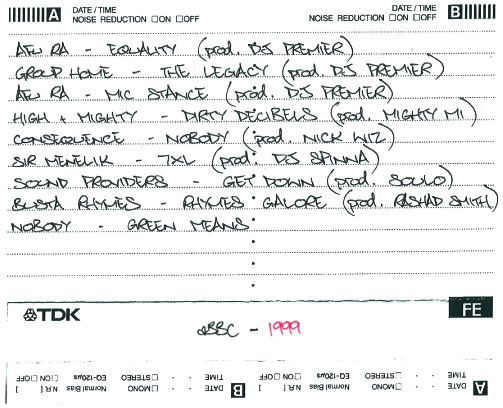 A DATE / TIME
NOISE REDUCTION □ON □OFF
DATE / TIME B
NOISE REDUCTION □ON □OFF
AFU RA - EQUALITY (prod. DJ PREMIER)
GROUP HOME - THE LEGACY (prod. DJ PREMIER)
AFU RA - MIC STANCE (prod. DJ PREMIER)
HIGH + MIGHTY - DIRTY DECIBELS (prod. MIGHTY MI)
CONSEQUENCE - NOBODY (prod. NICK WIZ)
SIR MENELIK - 7XL (prod. DJ SPINNA)
SOUND PROVIDERS - GET DOWN (prod. SOULO)
BUSTA RHYMES - RHYMES GALORE (prod. RASHAD SMITH)
NOBODY - GREEN MEANS
TDK
FE
- 1999
A DATE TIME
Normal Bias EQ-120µs
N.R.[ ] □ON □OFF
□MONO □STEREO
B DATE TIME
Normal Bias EQ-120µs
N.R.[ ] □ON □OFF
□MONO □STEREO